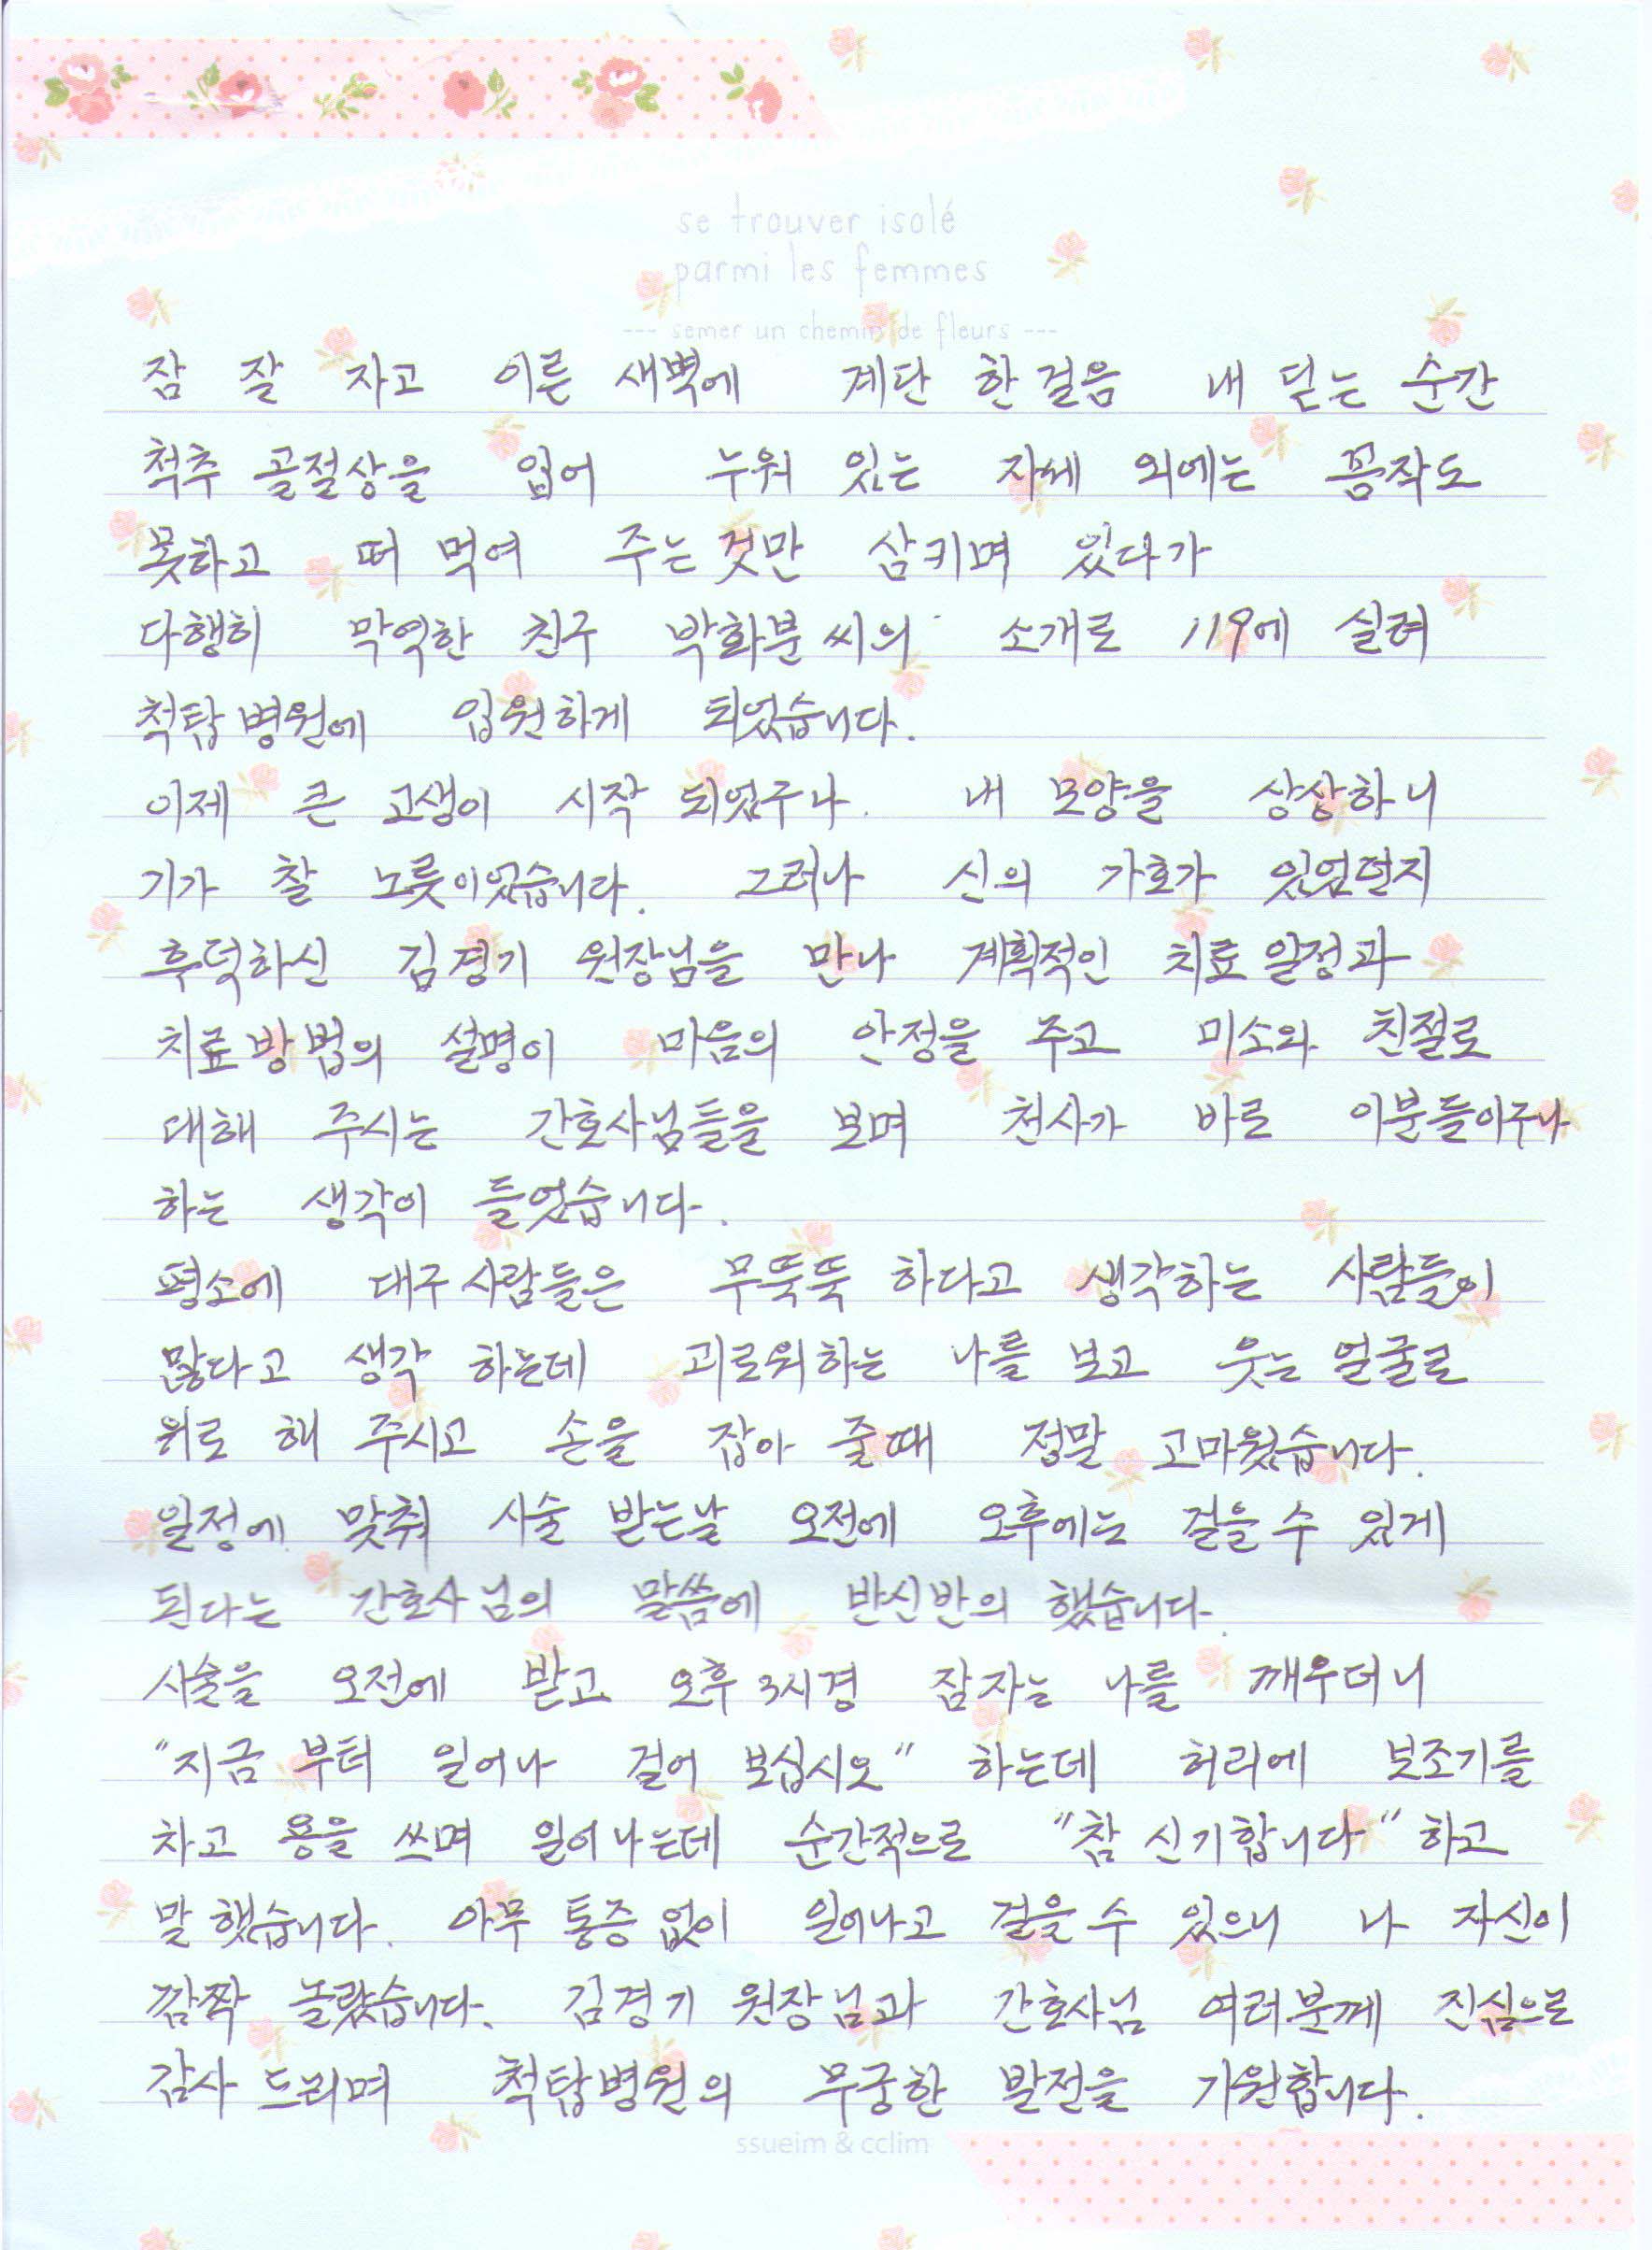 se trouver isolé
parmi les femmes
--- semer un chemin de fleurs ---
잠 잘 자고 이른 새벽에 계단 한 걸음 내 딛는 순간
척추 골절상을 입어 누워 있는 자세 외에는 꼼작도
못하고 떠 먹여 주는 것만 삼키며 있다가
다행히 막역한 친구 박화분씨의 소개로 119에 실려
척탑병원에 입원하게 되었습니다.
이제 큰 고생이 시작 되었구나. 내 모양을 상상하니
기가 찰 노릇이었습니다. 그러나 신의 가호가 있었던지
후덕하신 김경기 원장님을 만나 계획적인 치료일정과
치료방법의 설명이 마음의 안정을 주고 미소와 친절로
대해 주시는 간호사님들을 보며 천사가 바로 이분들이구나
하는 생각이 들었습니다.
평소에 대구사람들은 무뚝뚝 하다고 생각하는 사람들이
많다고 생각 하는데 괴로워하는 나를 보고 웃는 얼굴로
위로 해 주시고 손을 잡아 줄때 정말 고마웠습니다.
일정에 맞춰 시술 받는날 오전에 오후에는 걸을 수 있게
된다는 간호사님의 말씀에 반신반의 했습니다.
시술을 오전에 받고 오후 3시경 잠자는 나를 깨우더니
"지금 부터 일어나 걸어 보십시오" 하는데 허리에 보조기를
차고 용을 쓰며 일어나는데 순간적으로 "참 신기합니다" 하고
말 했습니다. 아무 통증 없이 일어나고 걸을 수 있으니 나 자신이
깜짝 놀랐습니다. 김경기 원장님과 간호사님 여러분께 진심으로
감사 드리며 척탑병원의 무궁한 발전을 기원합니다.
ssueim & cclim